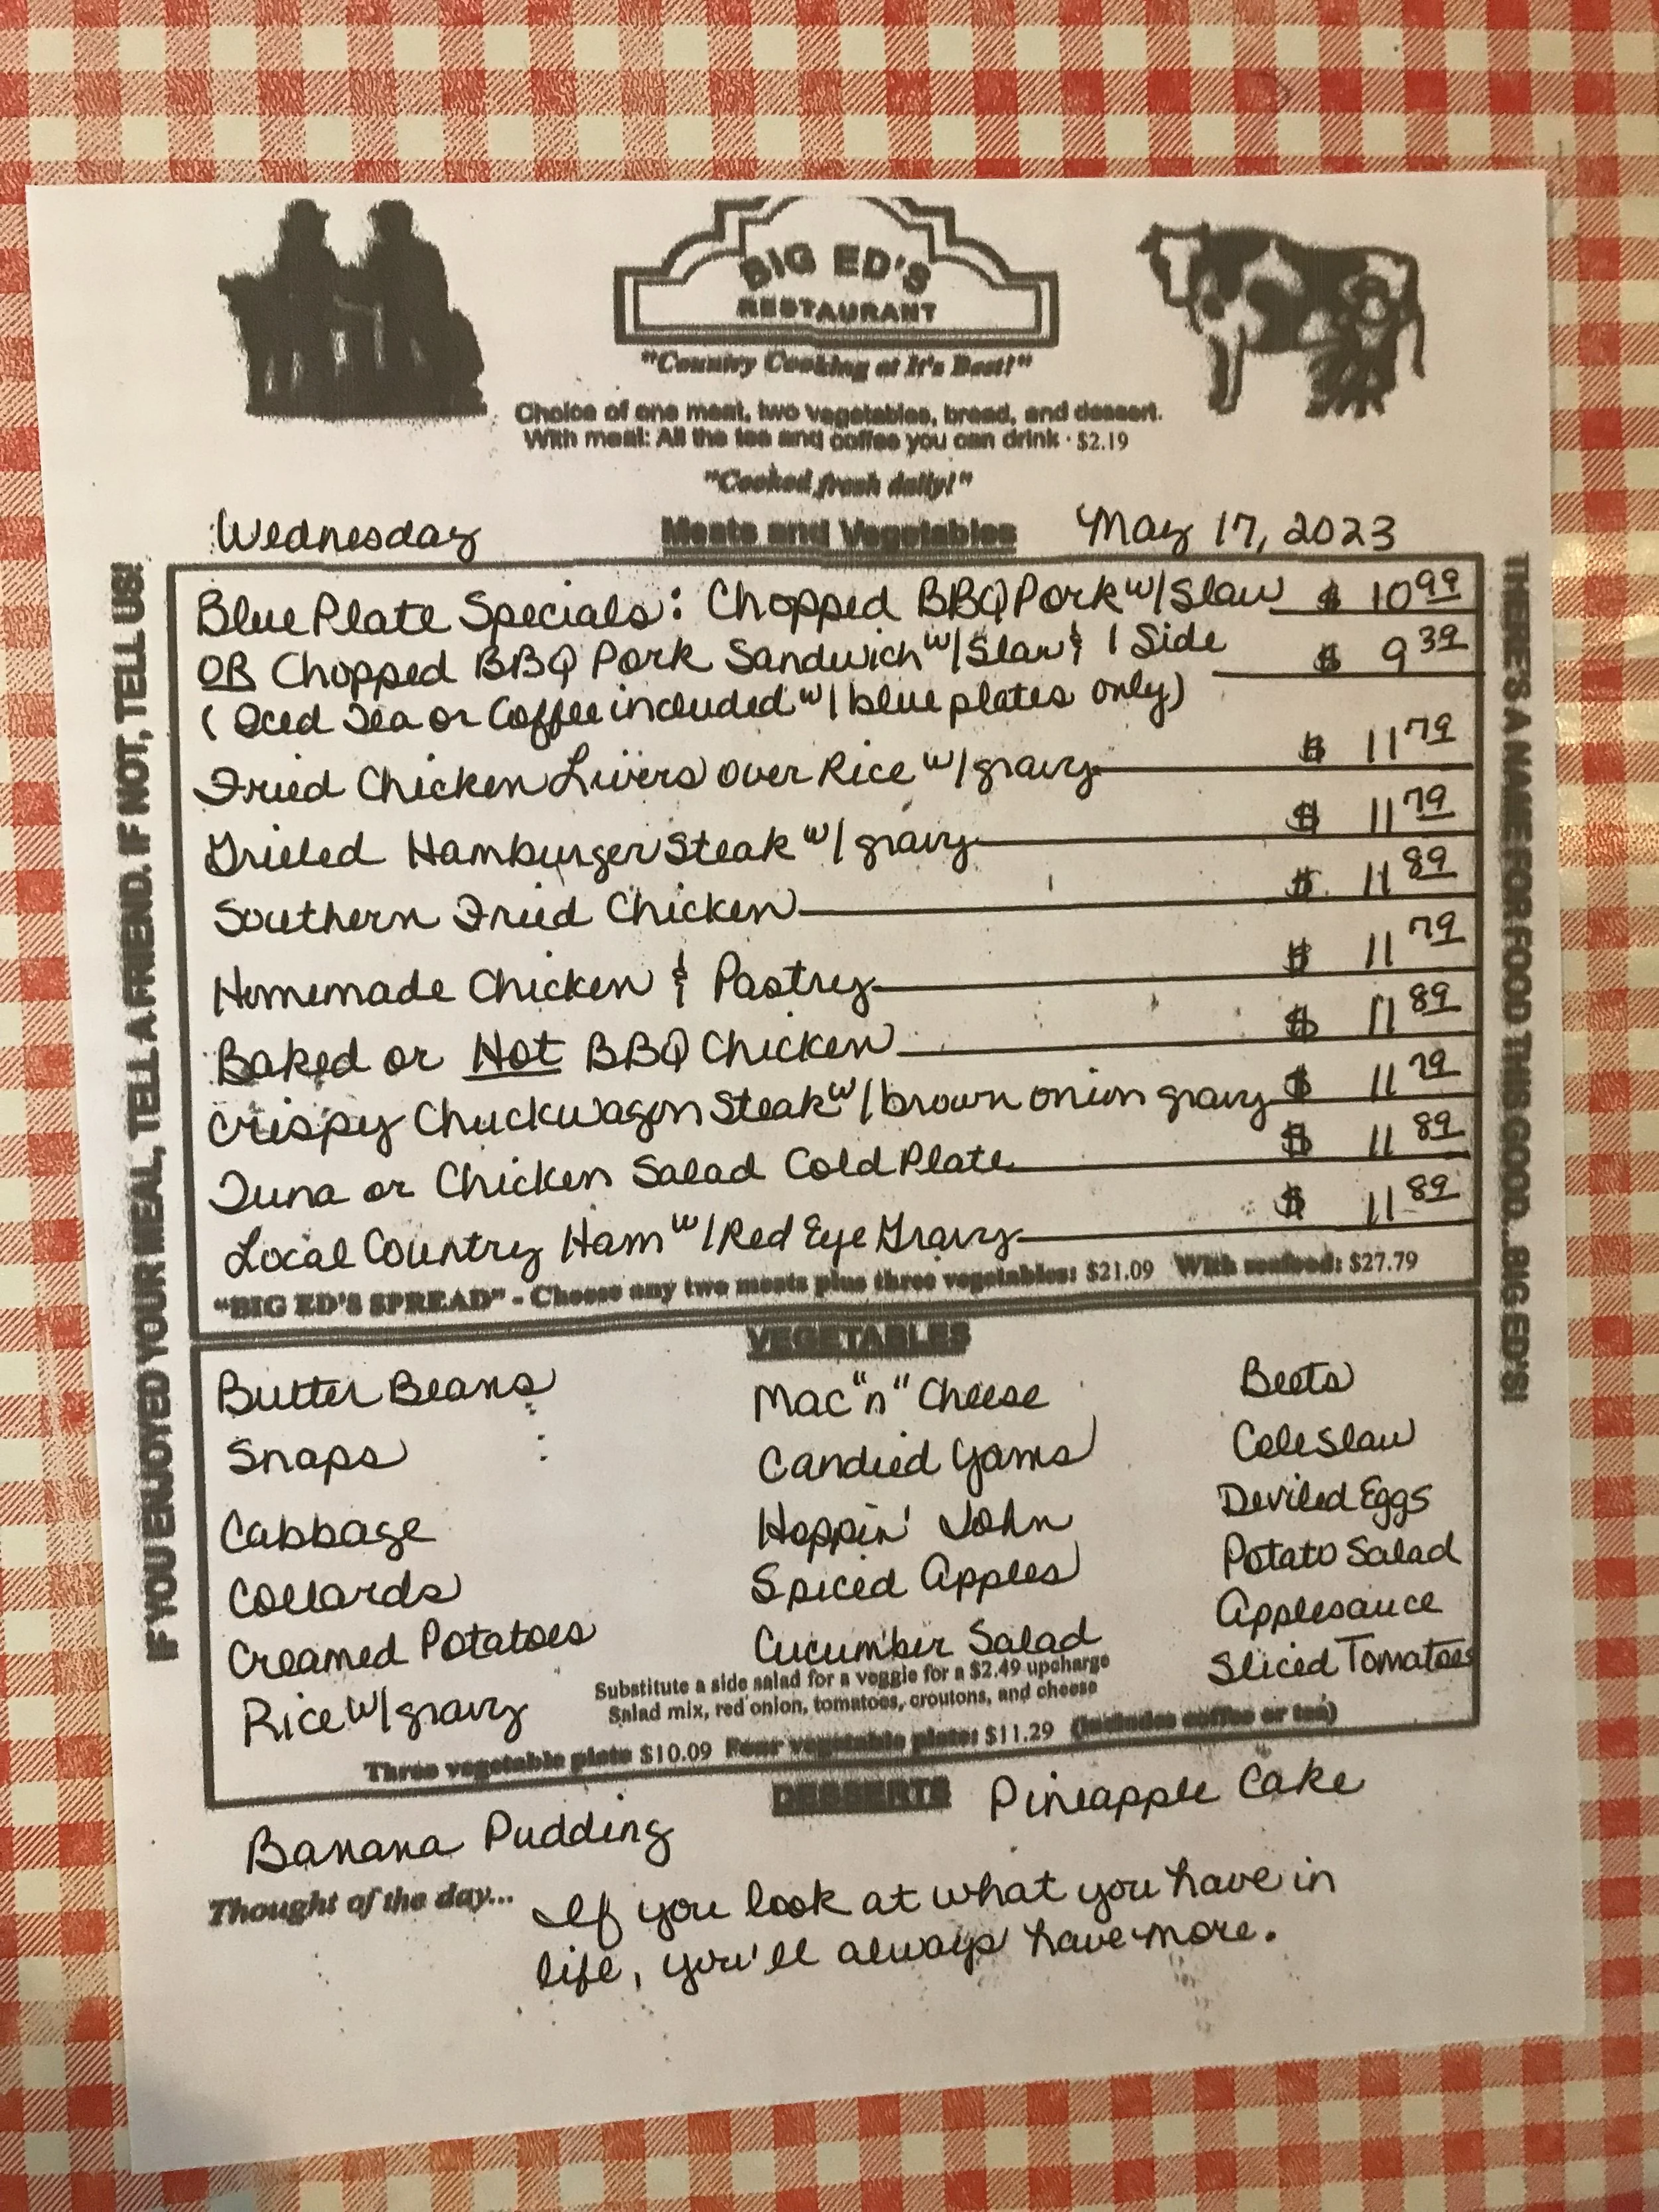 BIG ED'S
RESTAURANT
"Country Cooking at It's Best!"
Choice of one meat, two vegetables, bread, and dessert.
With meal: All the tea and coffee you can drink · $2.19
"Cooked fresh daily!"
Wednesday Meats and Vegetables May 17, 2023
Blue Plate Specials: Chopped BBQ Pork w/ Slaw $ 10 99
OR Chopped BBQ Pork Sandwich w/ Slaw & 1 Side $ 9 39
(Iced Tea or Coffee included w/ blue plates only)
Fried Chicken Livers over Rice w/ gravy $ 11 79
Grilled Hamburger Steak w/ gravy $ 11 79
Southern Fried Chicken $ 11 89
Homemade Chicken & Pastry $ 11 79
Baked or Hot BBQ Chicken $ 11 89
Crispy Chuckwagon Steak w/ brown onion gravy $ 11 79
Tuna or Chicken Salad Cold Plate $ 11 89
Local Country Ham w/ Red Eye Gravy $ 11 89
"BIG ED'S SPREAD" - Choose any two meats plus three vegetables: $21.09 With seafood: $27.79
VEGETABLES
Butter Beans Mac "n" Cheese Beets
Snaps Candied Yams Cole Slaw
Cabbage Hoppin' John Deviled Eggs
Collards Spiced Apples Potato Salad
Creamed Potatoes Cucumber Salad Applesauce
Rice w/ gravy Sliced Tomatoes
Substitute a side salad for a veggie for a $2.49 upcharge
Salad mix, red onion, tomatoes, croutons, and cheese
Three vegetable plate $10.09 Four vegetable plate: $11.29 (Includes coffee or tea)
DESSERTS
Banana Pudding Pineapple Cake
Thought of the day... If you look at what you have in
life, you'll always have more.
IF YOU ENJOYED YOUR MEAL, TELL A FRIEND. IF NOT, TELL US!
THERE'S A NAME FOR FOOD THIS GOOD...BIG ED'S!